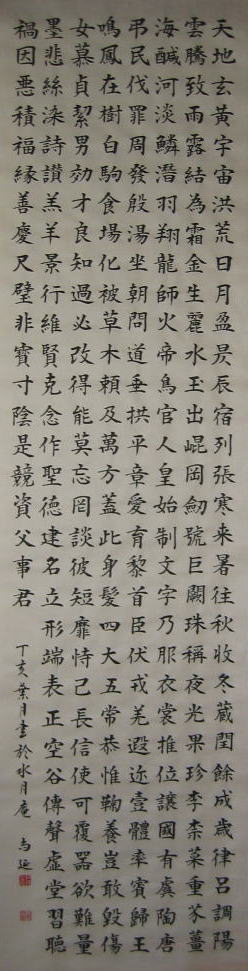 天地玄黃宇宙洪荒日月盈昃辰宿列張寒来暑往秋收冬藏閏餘成歲律呂調陽
雲騰致雨露結為霜金生麗水玉出崐岡劒號巨闕珠稱夜光果珍李柰菜重芥薑
海醎河淡鱗潛羽翔龍師火帝鳥官人皇始制文字乃服衣裳推位讓國有虞陶唐
弔民伐罪周發殷湯坐朝問道垂拱平章愛育黎首臣伏戎羌遐迩壹體率賓歸王
鳴鳳在樹白駒食場化被草木賴及萬方蓋此身髮四大五常恭惟鞠養豈敢毀傷
女慕貞絜男効才良知過必改得能莫忘罔談彼短靡恃己長信使可覆器欲難量
墨悲絲染詩讚羔羊景行維賢克念作聖德建名立形端表正空谷傳聲虛堂習聽
禍因惡積福緣善慶尺璧非寶寸陰是競資父事君
丁亥葉月書於水月庵